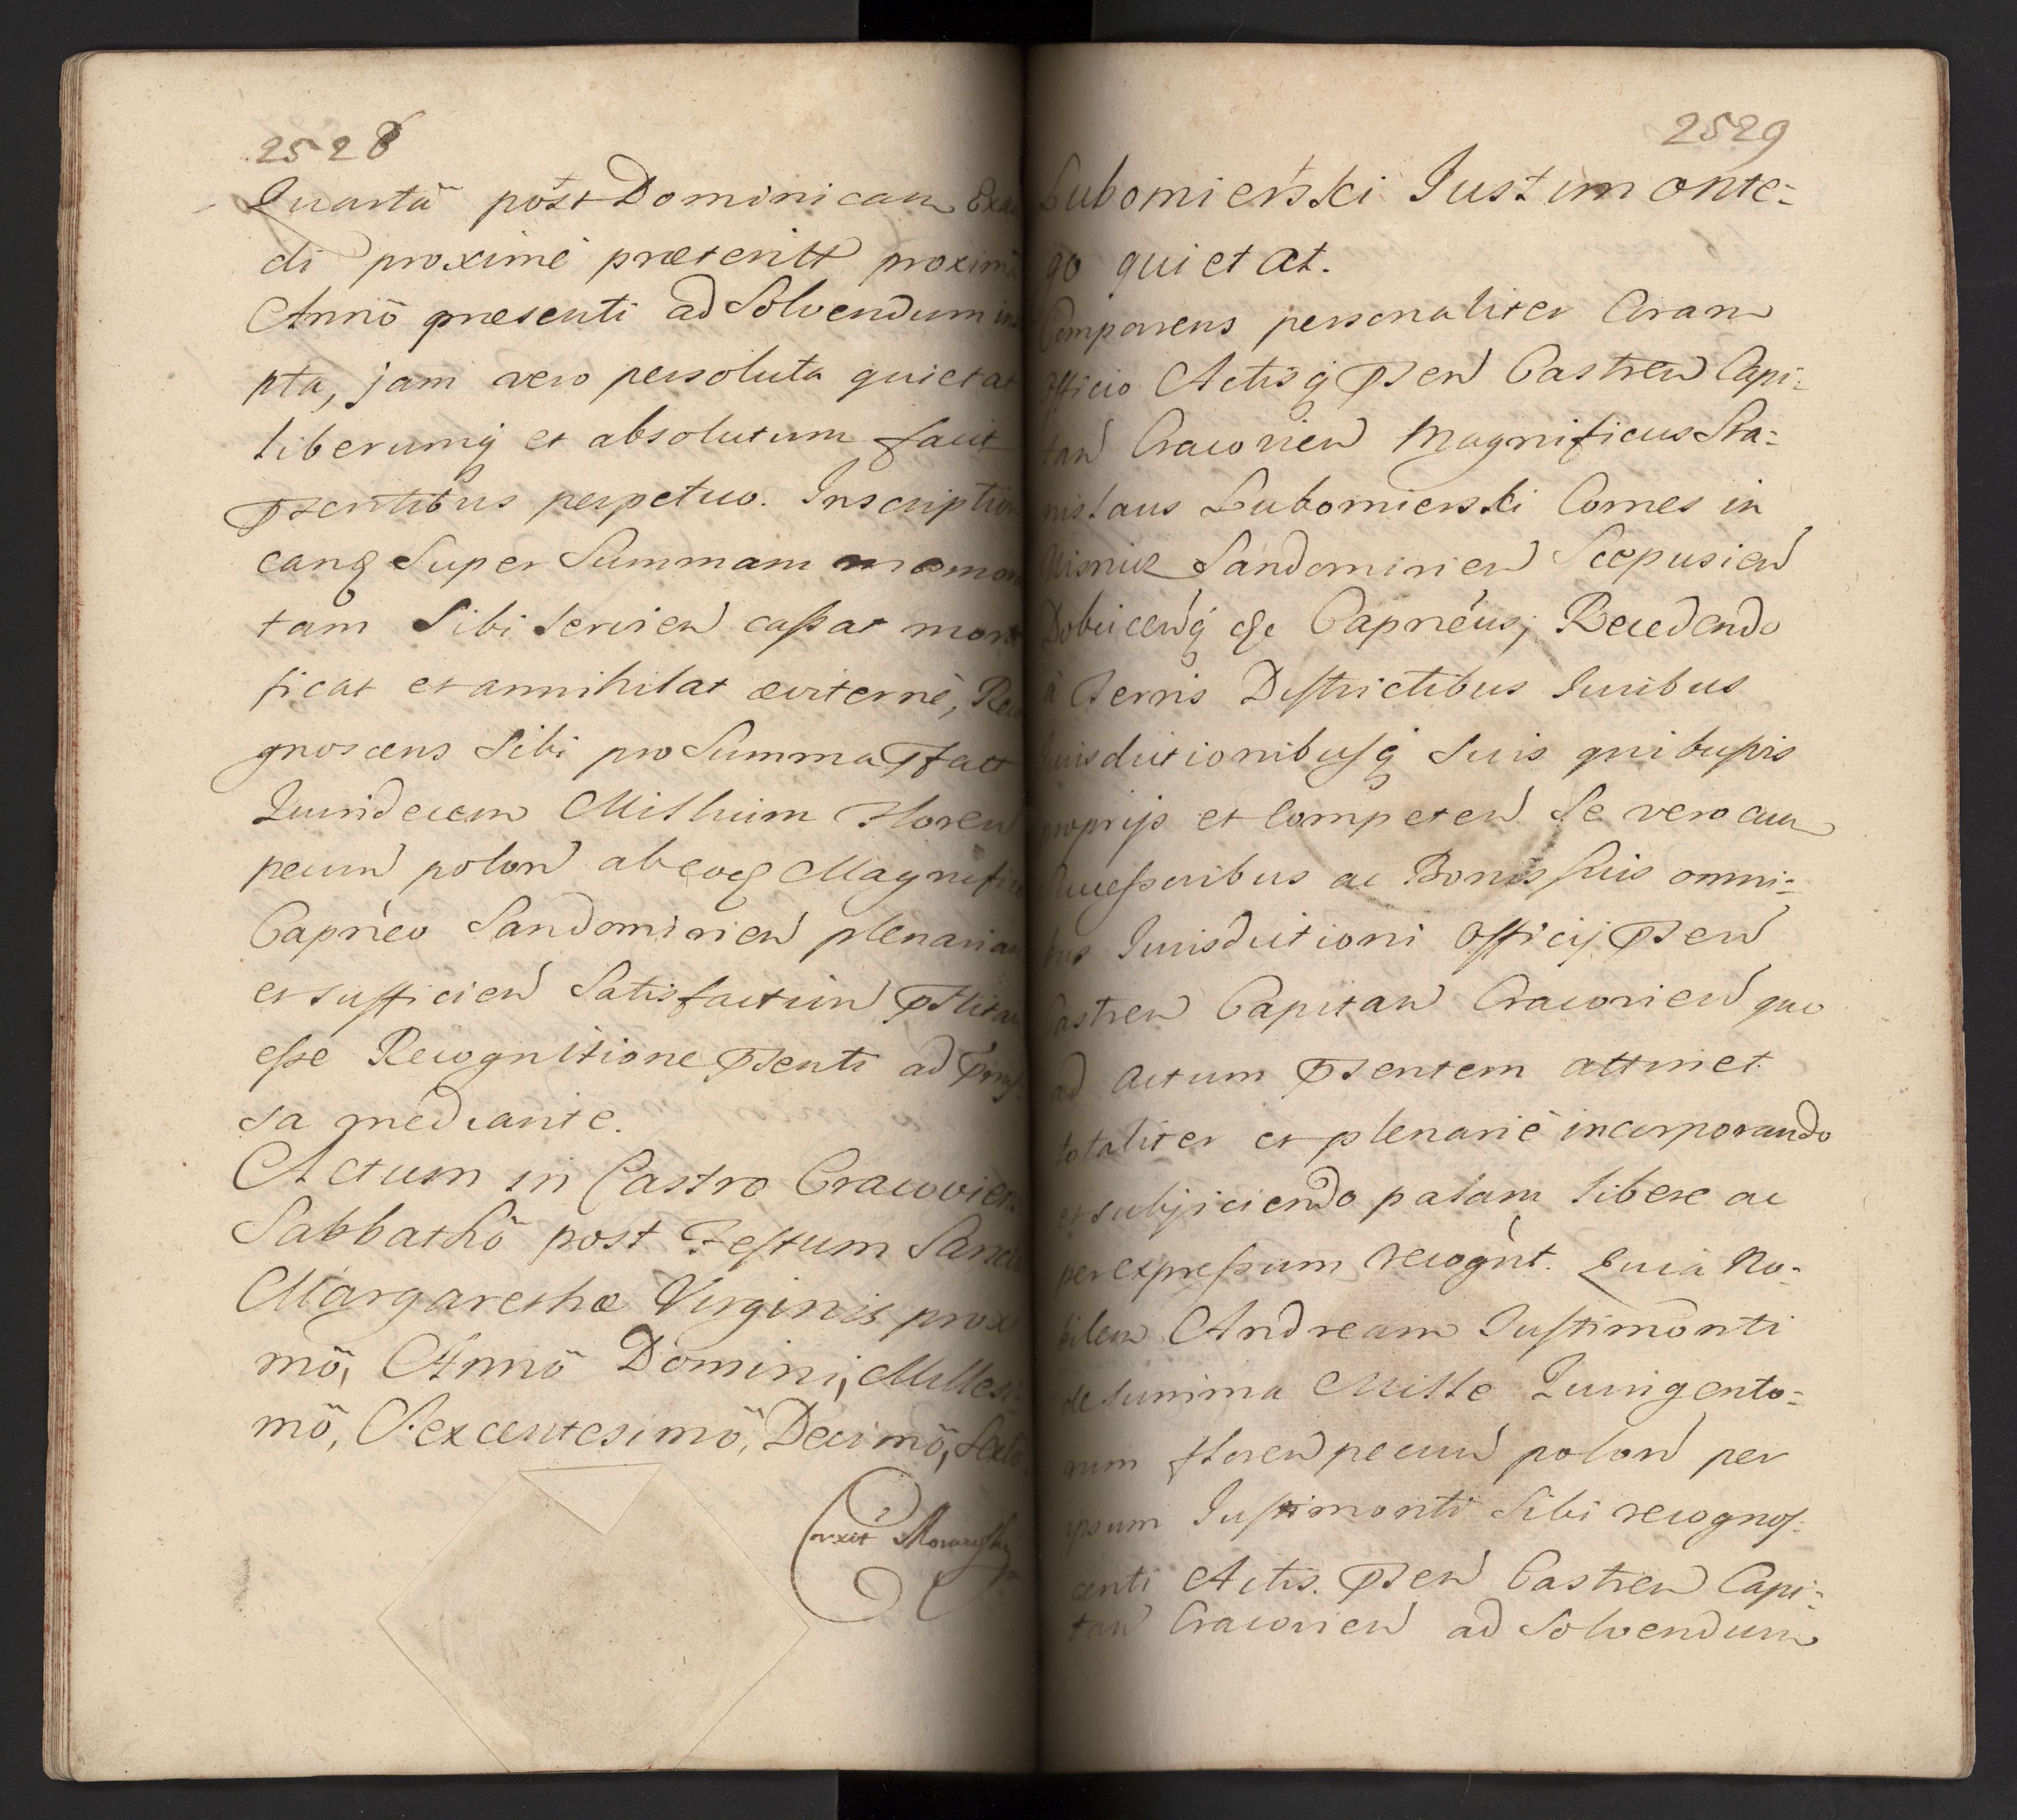 2528
Quartã post Dominicam Exau
di proximè præteritt proximã
Annõ præsenti ad Solvendum in
pta, jam vero persoluta quietat
liberumq et absolutum facit
pñsentibus perpetuo. Inscription
eanq Super Summam memora
tam Sibi Servień caſsat morti
ficat et annihilat æviternè, Reco
gnoscens Sibi pro Summa pfatt
Quindecem Millium Floreń
pecuń poloń ab eoq Magnifico
Capneo Sandomirień plenariam
et sufficień Satisfactiń pstitam
eſse Recognitione psenti ad pmiſ
sa mediante.
Actum in Castro Cracovien.
Sabbathõ post Festum Sanctæ
Margarethæ Virginis proxi
mõ, Annõ Domini, Millesi-
mõ, Sexcentesimõ, Decimõ, Sexto.
2529
Lubomierski Justimonte-
go quietat.
Comparens personaliter Coram
Officio Actisq pseń Castreń Capi-
tań Cracovień Magnificus Sta-
nislaus Lubomierski Comes in
Wisnicz Sandomirień Scepusień
Dobcicenq &c Capneus, Recedendo
à Terris Diſtrictibus Juribus
Jurisdictionibuſq Suis quibuſvis
proprijs et Competeń Se vero cum
Succeſsoribus ac Bonis ſuis omni-
bus Jurisdictioni Officij pseń
Castreń Capitań Cracovień quo
ad Actum psentem attinet
totaliter et plenariè incorporando
et subijciendo palam libere ac
per expreſsum recognt. Quia No-
bilem Andream Juſtimonti
de Summa Mille Quingento-
rum floreń pecuń poloń per
ipsum Juſtimonti Sibi recognoſ-
centi Actis pseń Castreń Capi-
tań Cracovień ad Solvendum